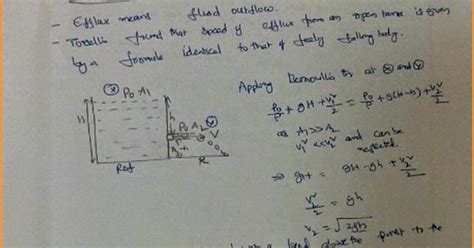 - Efflux means fluid outflow.
- Torcelli's found that speed of efflux from an open tank is given
by a formula identical to that of freely falling body.
Applying Bernoulli's th at Ⓧ and Ⓨ
P₀/ρ + gH + v₁²/2 = P₀/ρ + g(H-h) + v₂²/2
as A₁>>A₂
v₁² << v₂² and can be
neglected.
⇒ gH = gH - gh + v₂²/2
v₂²/2 = gh
v₂ = √2gh
Ⓧ
P₀ A₁
H
h
P₀ A₂ Ⓨ
V
H-h
R
Ref
above the
to the